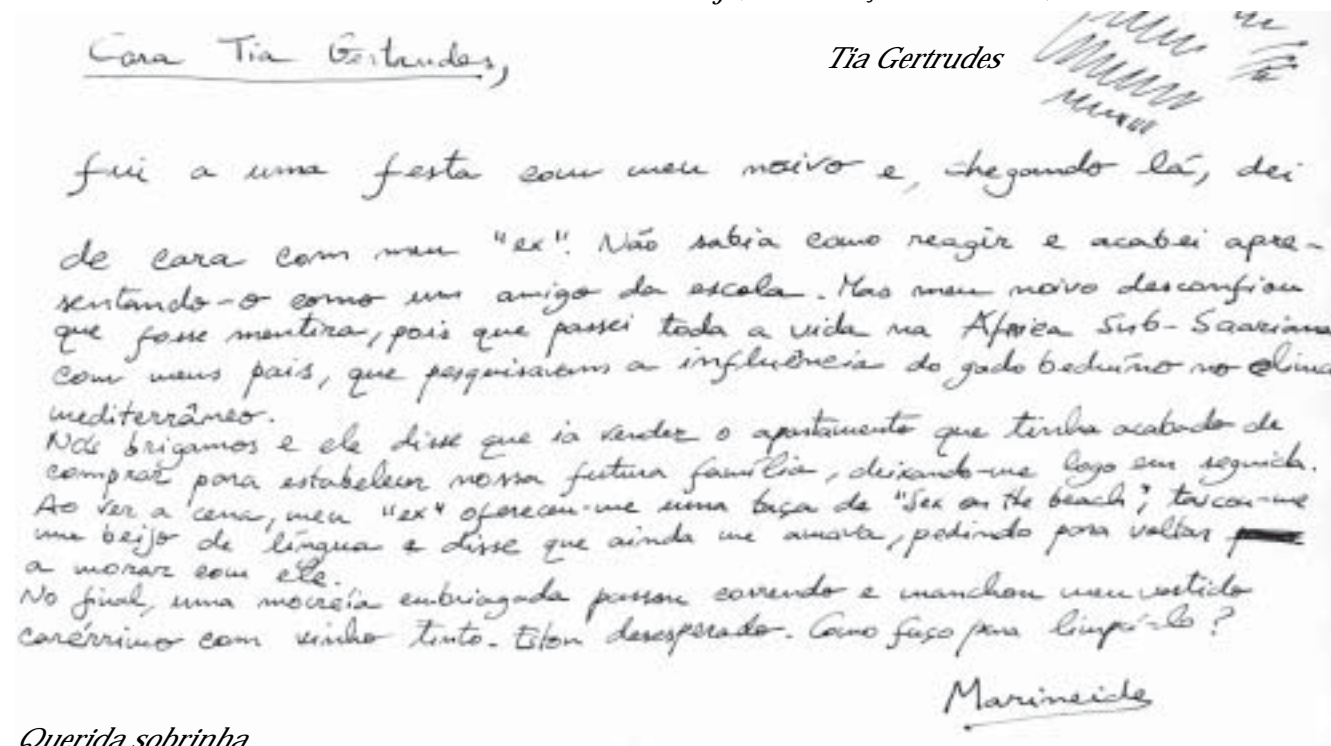 Cara Tia Gertrudes,
Tia Gertrudes
fui a uma festa com meu noivo e, chegando lá, dei
de cara com meu "ex". Não sabia como reagir e acabei apre-
sentando-o como um amigo da escola. Mas meu noivo desconfiou
que fosse mentira, pois que passei toda a vida na África Sub-Saariana
com meus pais, que pesquisavam a influência do gado beduíno no clima
mediterrâneo.
Nós brigamos e ele disse que ia vender o apartamento que tinha acabado de
comprar para estabelecer nossa futura família, deixando-me logo em seguida.
Ao ver a cena, meu "ex" ofereceu-me uma taça de "Sex on the beach", tascou-me
um beijo de língua e disse que ainda me amava, pedindo para voltar
a morar com ele.
No final, uma mocréia embriagada passou correndo e manchou meu vestido
carérrimo com vinho tinto. Estou desesperada. Como faço para limpá-lo?
Marineide
Querida sobrinha